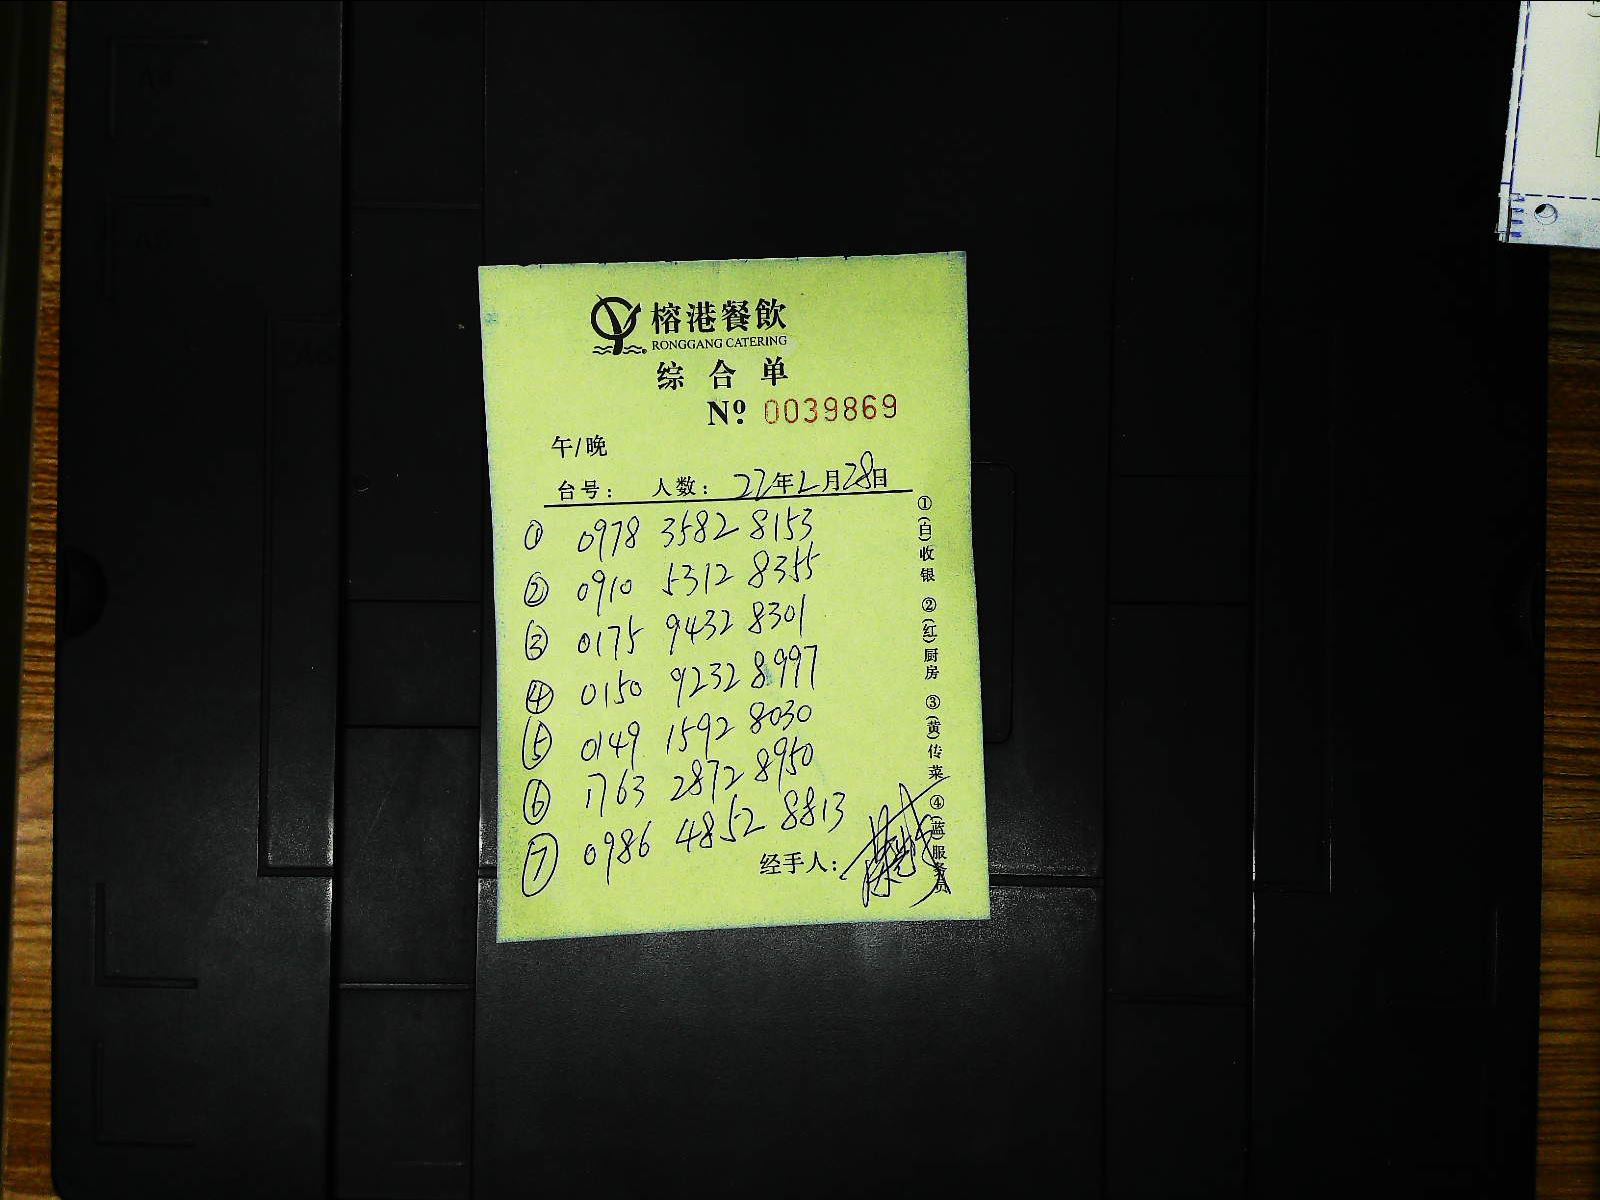 榕港餐飲
RONGGANG CATERING
综合单
Nº 0039869
午/晚
台号： 人数： 22年2月28日
① 0978 3582 8153
② 0910 5312 8355
③ 0175 9432 8301
④ 0150 9232 8997
⑤ 0149 1592 8030
⑥ 1763 2872 8950
⑦ 0986 4852 8813
经手人：
①(白)收银 ②(红)厨房 ③(黄)传菜 ④(蓝)服务员